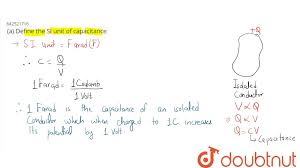 642521716
(a) Define the SI unit of capacitance:
→ S.I. unit = Farad (F)
∴ C = Q
V
1 Farad = 1 Coulomb
1 Volt
∴ 1 Farad is the capacitance of an isolated
Conductor which when charged to 1C increases
its potential by 1 Volt.
+Q
Isolated
Conductor
V ∝ Q
Q ∝ V
Q = CV
↳ Capacitance
doubtnut